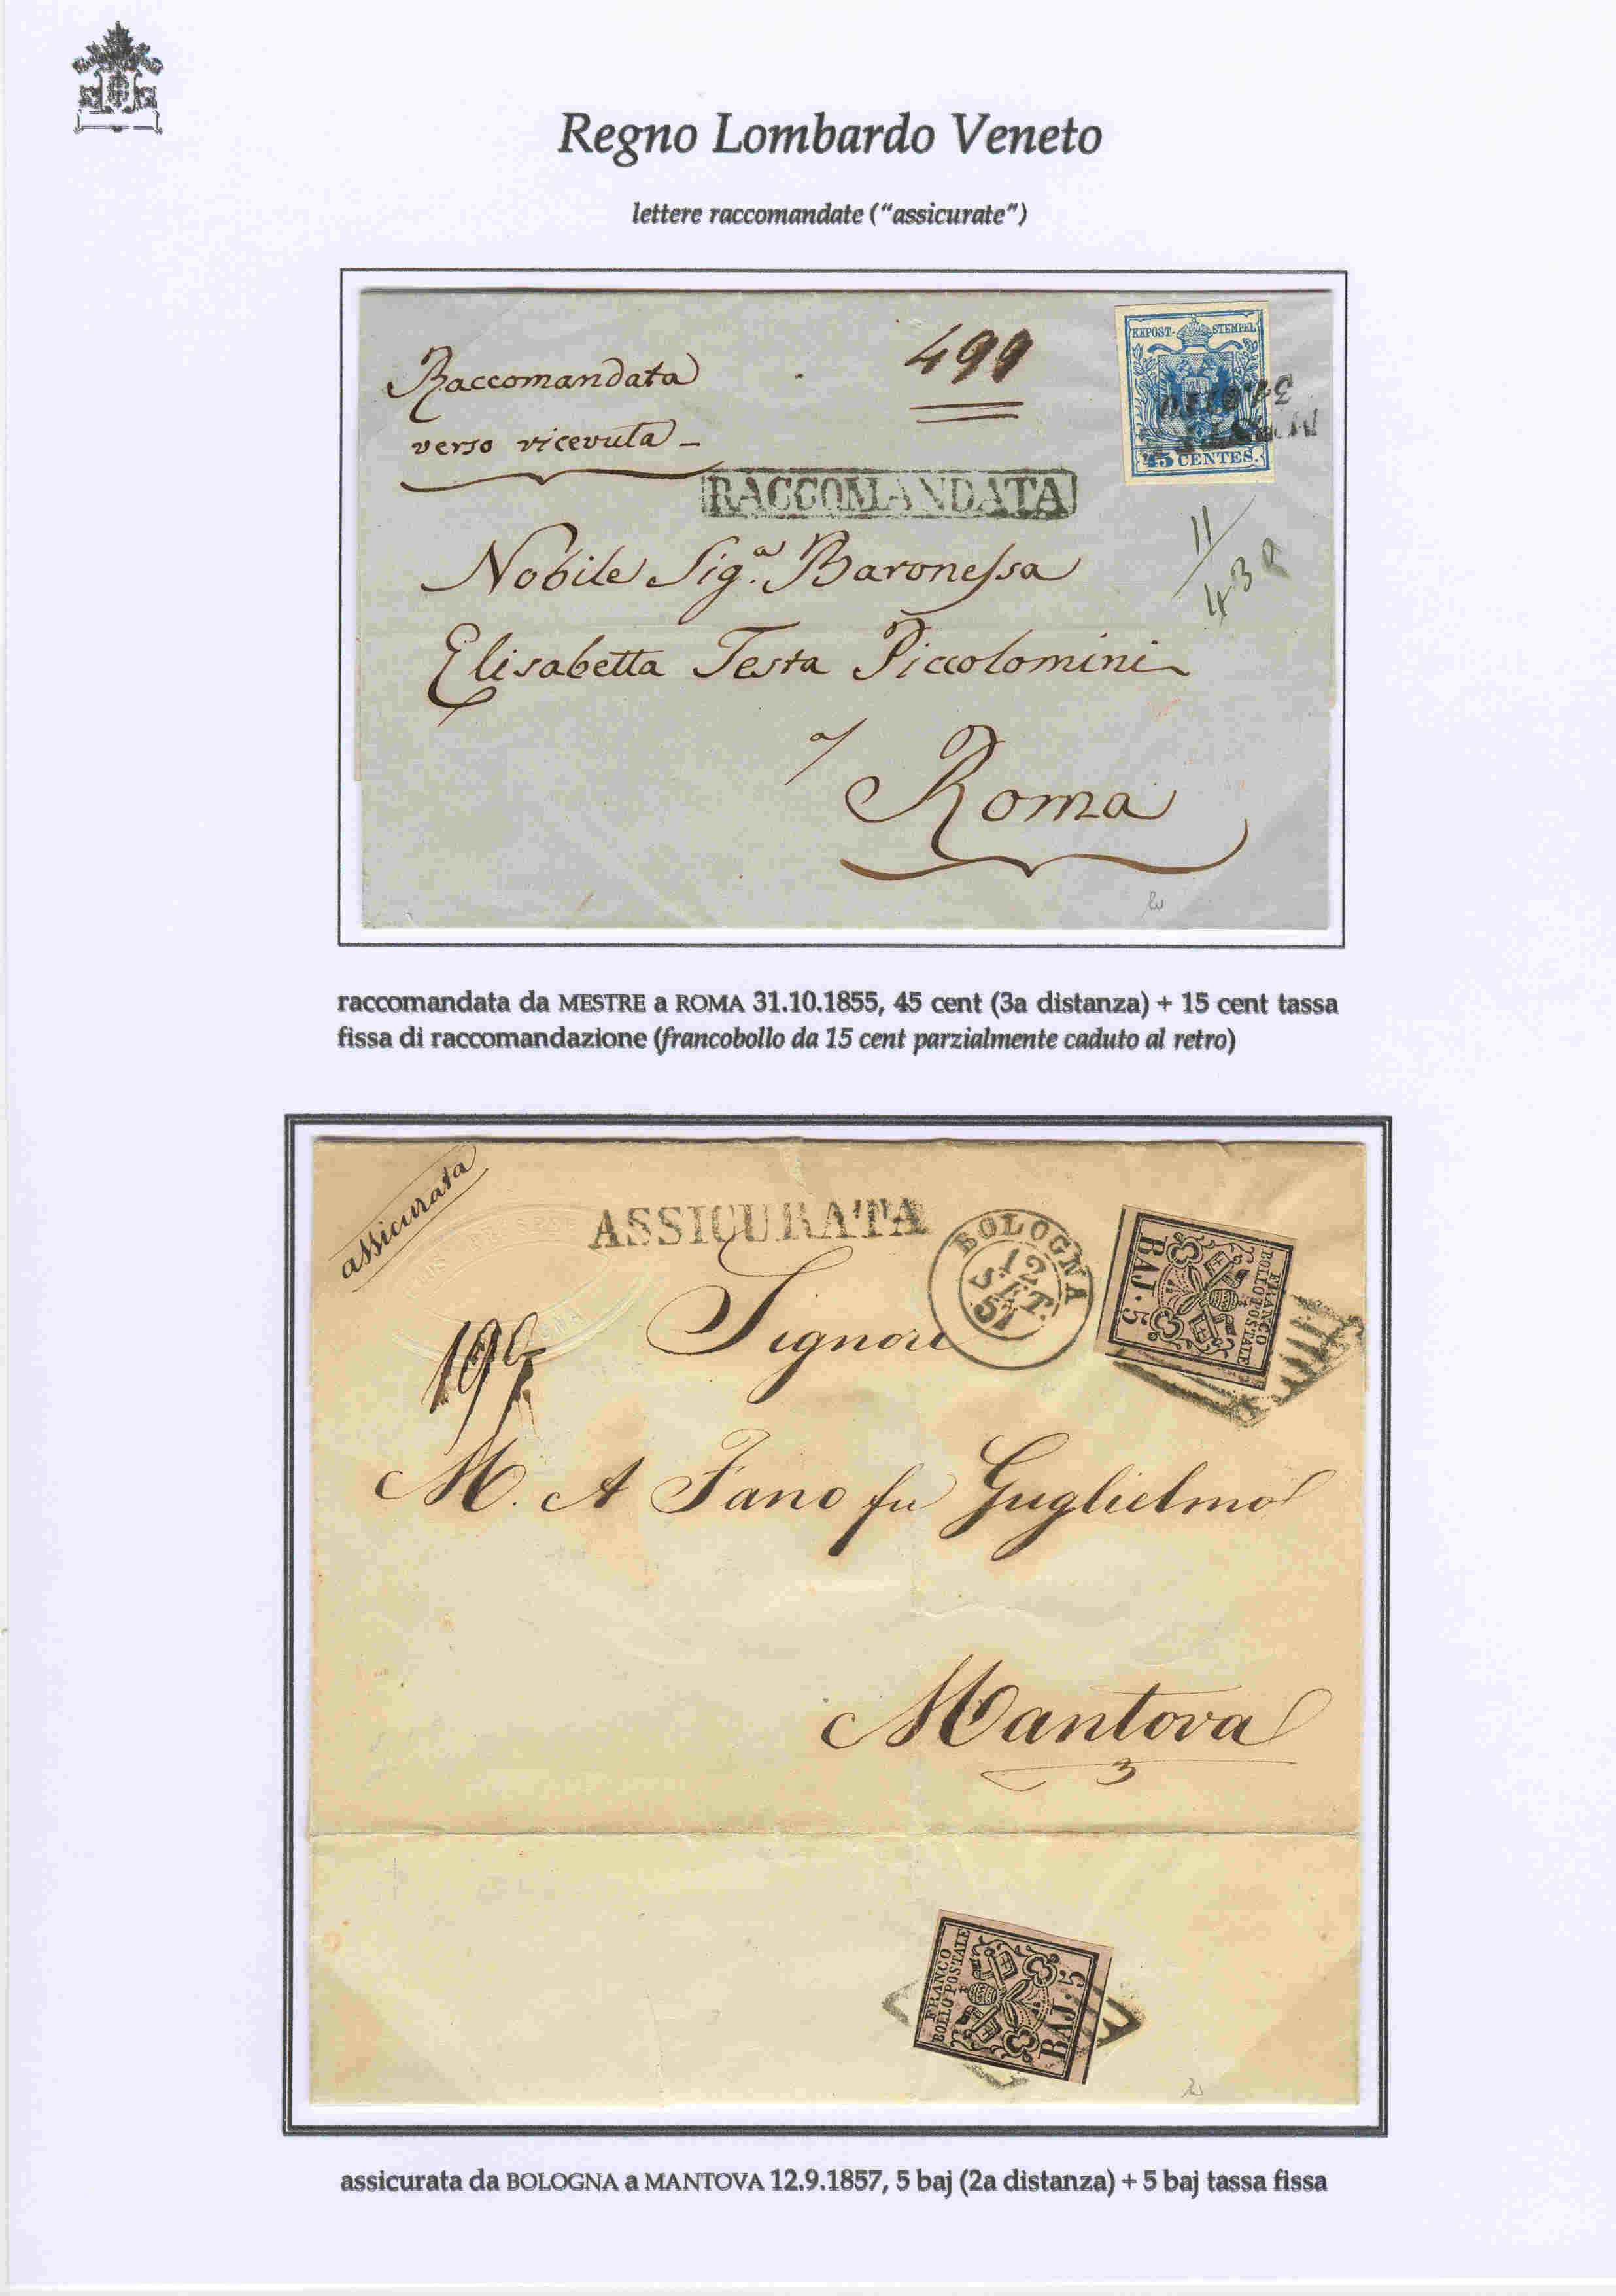 Regno Lombardo Veneto
lettere raccomandate ("assicurate")
Raccomandata
verso ricevuta -
499
KKPOST-STEMPEL
45 CENTES.
RACCOMANDATA
11/
43
Nobile Sig.a Baronessa
Elisabetta Testa Piccolomini
a/
Roma
raccomandata da MESTRE a ROMA 31.10.1855, 45 cent (3a distanza) + 15 cent tassa
fissa di raccomandazione (francobollo da 15 cent parzialmente caduto al retro)
assicurata
ASSICURATA
BOLOGNA
12
SET.
57
FRANCO
BOLLO POSTALE
BAJ. 5
Signore
M. A Fano fu Guglielmo
Mantova
3
FRANCO
BOLLO POSTALE
BAJ. 5
assicurata da BOLOGNA a MANTOVA 12.9.1857, 5 baj (2a distanza) + 5 baj tassa fissa